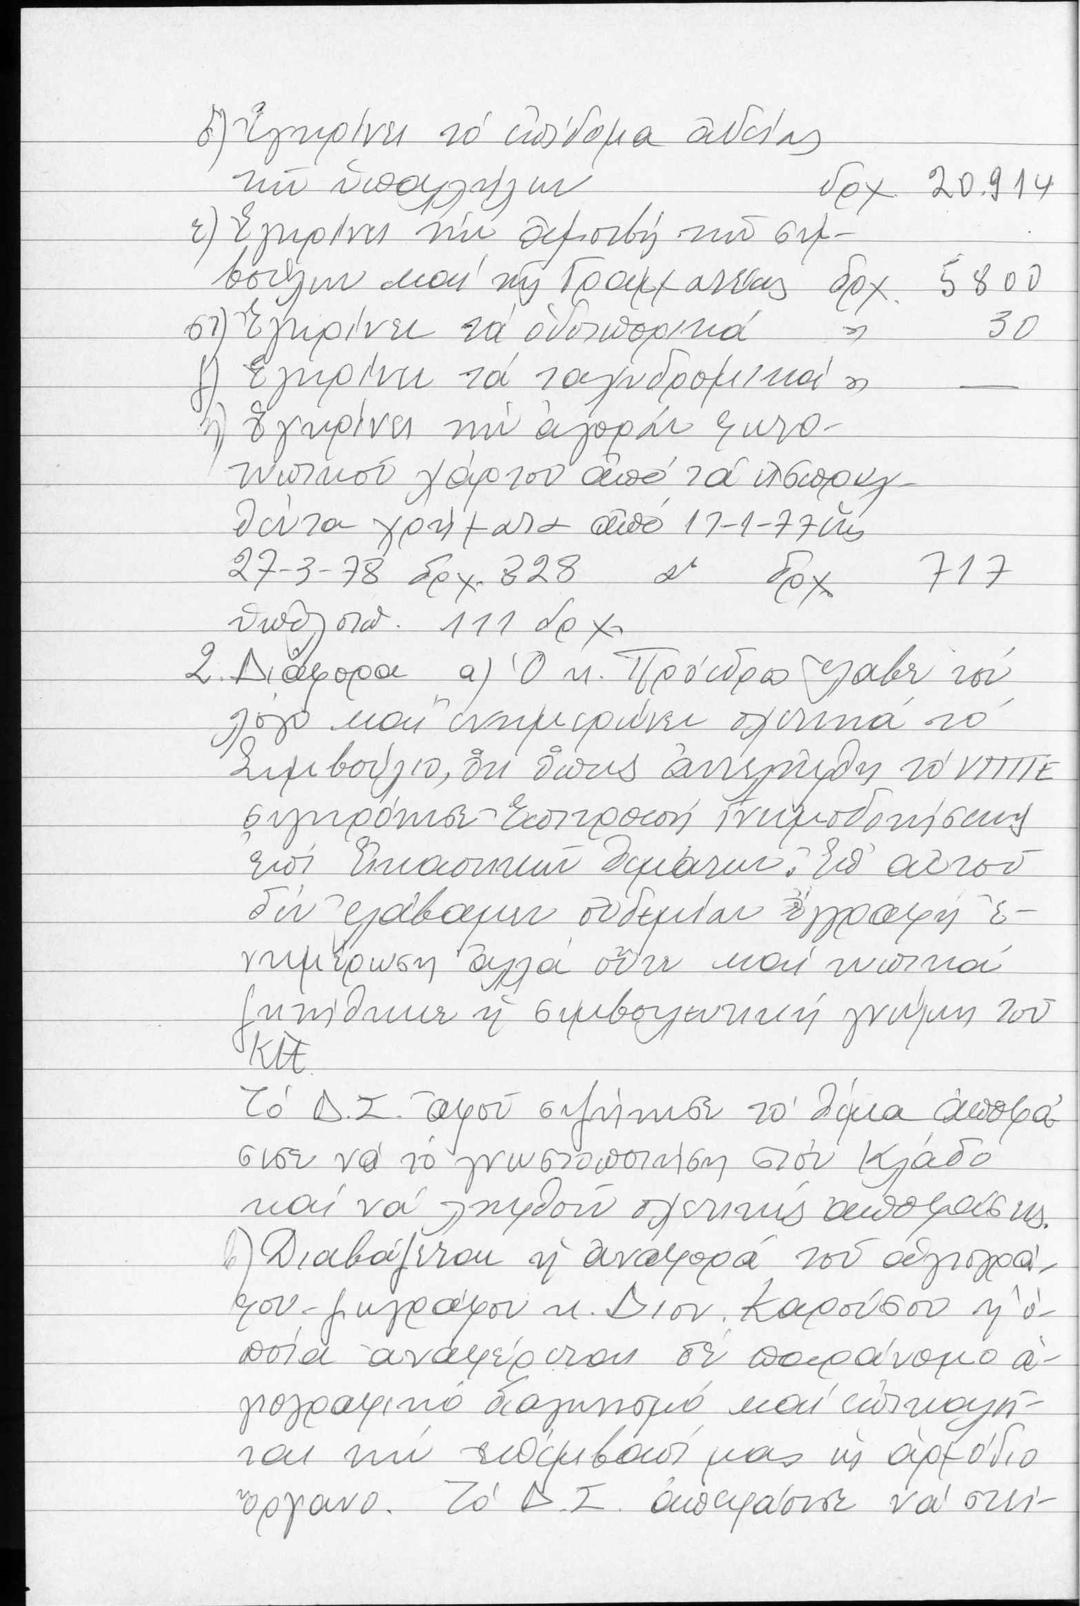 δ) Ἐγκρίνει τό ἐπίδομα ἀδείας
τῶν ὑπαλλήλων δρχ. 20.914
ε) Ἐγκρίνει τήν ἀμοιβή τῶν συμ-
βούλων καί τῆς Γραμματέως δρχ. 5800
στ) Ἐγκρίνει τά ὁδοιπορικά " 30
ζ) Ἐγκρίνει τά ταχυδρομικά " —
η) Ἐγκρίνει τήν ἀγοράν φωτο-
τυπικοῦ χάρτου ἀπό τά εἰσπραχ-
θέντα χρήματα ἀπό 17-1-77 ἕως
27-3-78 δρχ. 828 δρχ 717
ὑπόλοιπ. 111 δρχ.
2. Διάφορα α) Ὁ κ. Πρόεδρος ἔλαβε τόν
λόγο καί ἐνημερώνει σχετικά τό
Συμβούλιο, ὅτι ὅπως ἀντελήφθη τό ΥΠΠΕ
συγκρότησε Ἐπιτροπή Γνωμοδοτήσεως
ἐπί Εἰκαστικῶν θεμάτων. Ἐπ' αὐτοῦ
δέν ἐλάβαμεν οὐδεμίαν ἔγγραφη ἐ-
νημέρωση ἀλλά οὔτε καί τυπικά
ζητήθηκε ἡ συμβουλευτική γνώμη τοῦ
ΚΠΕ
Τό Δ.Σ. ἀφοῦ συζήτησε τό θέμα ἀποφά
σισε νά τό γνωστοποιήση στόν Κλάδο
καί νά ληφθοῦν σχετικές ἀποφάσεις.
β) Διαβάζεται ἡ ἀναφορά τοῦ ἁγιογρά-
φου-ζωγράφου κ. Διον. Καρούσου ἡ ὁ-
ποία ἀναφέρεται σέ παράνομο ἁ-
γιογραφικό διαγωνισμό καί ἐπικαλεῖ-
ται τήν ἐπέμβασί μας ὡς ἁρμόδιο
ὄργανο. Τό Δ.Σ. ἀπεφάσισε νά στεί-